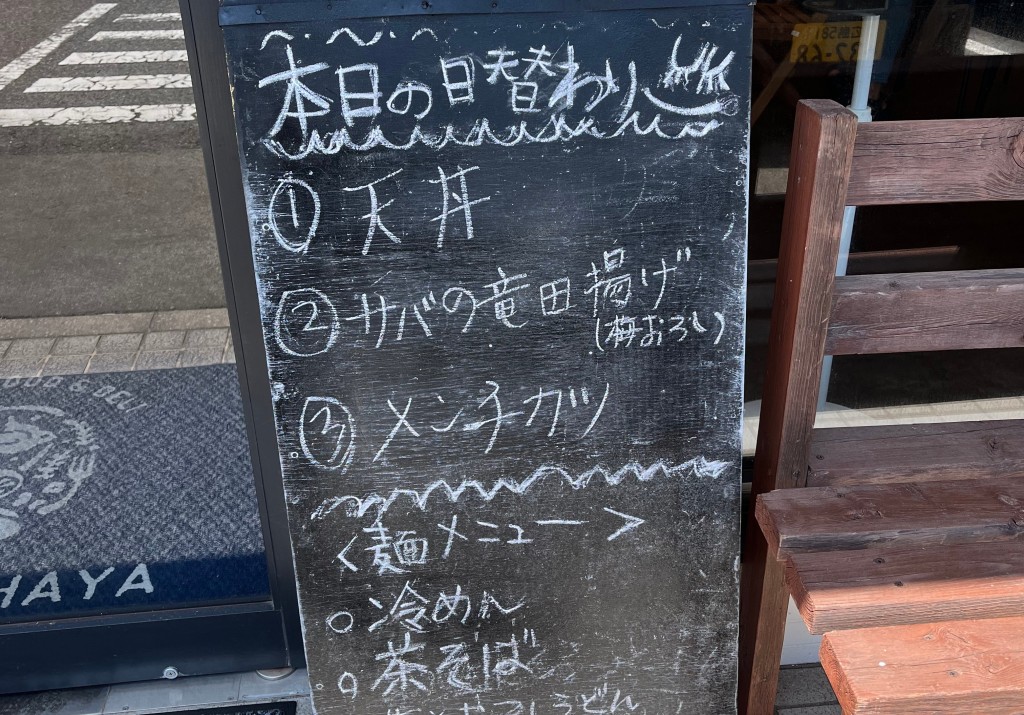 本日の日替わり
① 天丼
② サバの竜田揚げ
(梅おろし)
③ メンチカツ
<麺メニュー>
○ 冷めん
○ 茶そば
うどん
HAYA
37-68